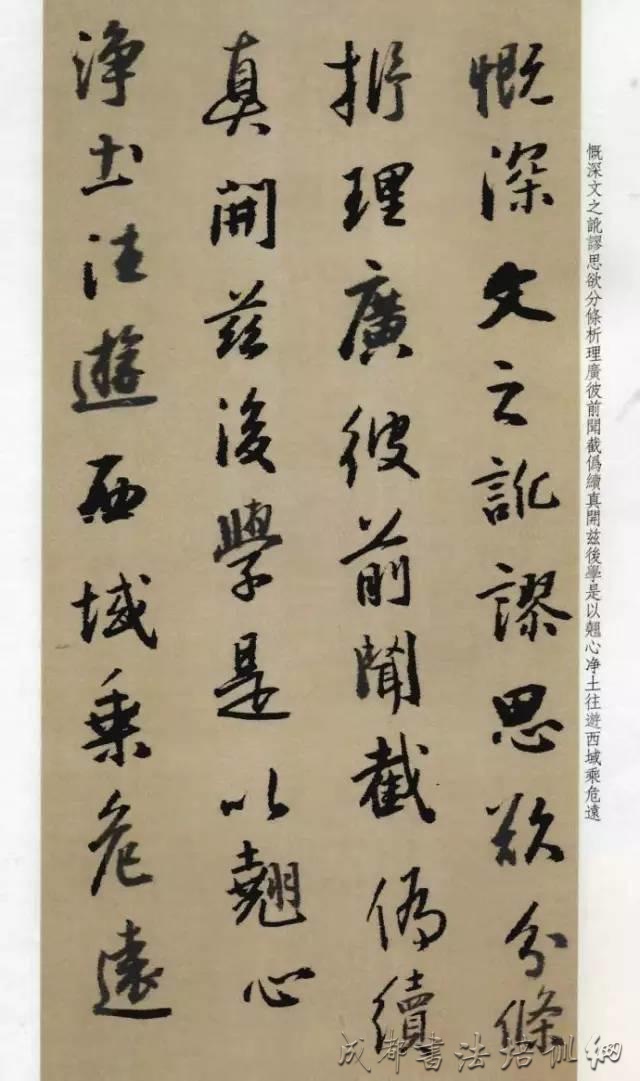 慨深文之訛謬思欲分條
析理廣彼前聞截偽續
真開茲後學是以翹心
淨土往遊西域乘危遠
慨深文之訛謬思欲分條析理廣彼前聞截僞續真開兹後學是以翹心净土往遊西域乘危遠
成都書法培訓網